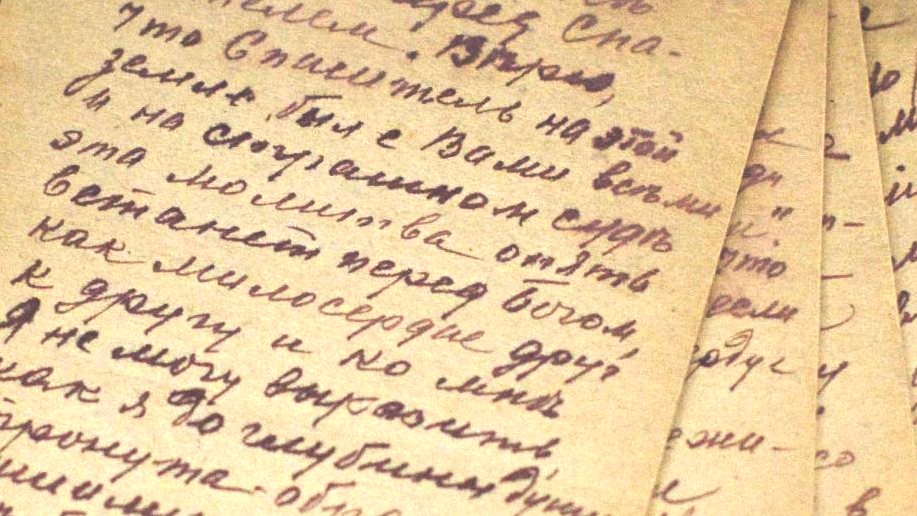 перед Спа-
сителем. Верю,
что Спаситель на этой
земле был с Вами всѣми
и на страшном судѣ
эта молитва опять
встанет перед Богом,
как милосердие друг
к другу и ко мнѣ
Я не могу выразить
как я до глубины души
тронута
ди
и."
что
если
жи-
со
в